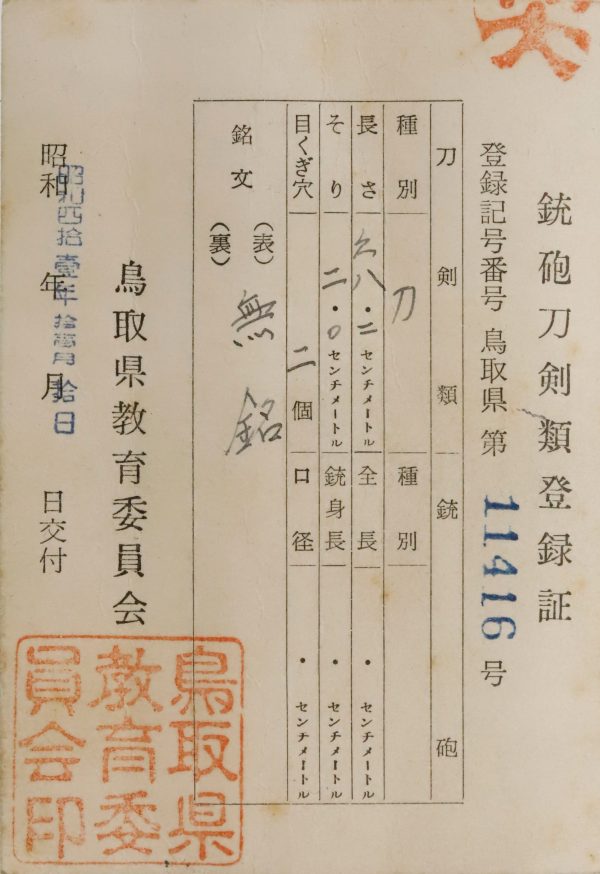 銃砲刀剣類登録証
登録記号番号 鳥取県 第 11416 号
刀剣類 銃砲
種別 刀 種別
長さ 六八・二センチメートル 全長 ・センチメートル
そり 二・〇センチメートル 銃身長 ・センチメートル
目くぎ穴 二個 口径 ・センチメートル
銘文 (表) 無銘
(裏)
鳥取県教育委員会
昭和 年 月 日交付
昭和四拾壹年拾壹月拾日
鳥取県
教育委
員会印